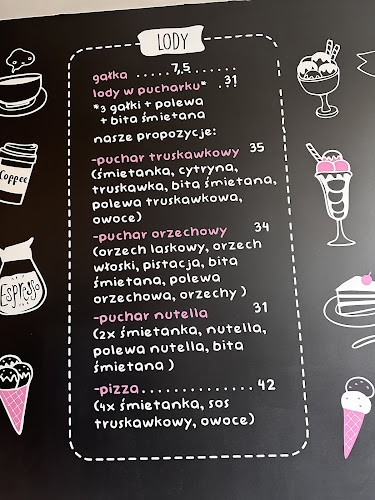 LODY
gałka .....7,5.......
lody w pucharku* .31
*3 gałki + polewa
+ bita śmietana
nasze propozycje:
-puchar truskawkowy 35
(śmietanka, cytryna,
truskawka, bita śmietana,
polewa truskawkowa,
owoce)
-puchar orzechowy 34
(orzech laskowy, orzech
włoski, pistacja, bita
śmietana, polewa
orzechowa, orzechy )
-puchar nutella 31
(2x śmietanka, nutella,
polewa nutella, bita
śmietana )
-pizza.............. 42
(4x śmietanka, sos
truskawkowy, owoce)
Coffee
ESPRESSO